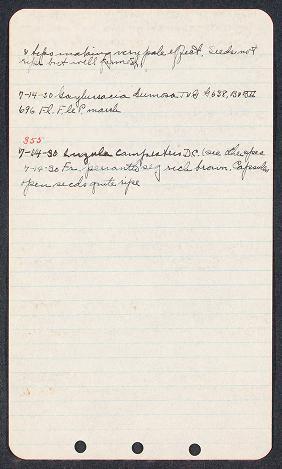 & tips making very pale effect. Seeds not
ripe but well formed.
7-14-30 Gaylussacia dumosa T&G G 638, B&B II
696 Fl. Fle P. marsh
355
7-14-30 Luzula campestris D.C. (see other spec
7-14-30 Fr. perianth seg rich brown. Capsules
open seeds quite ripe